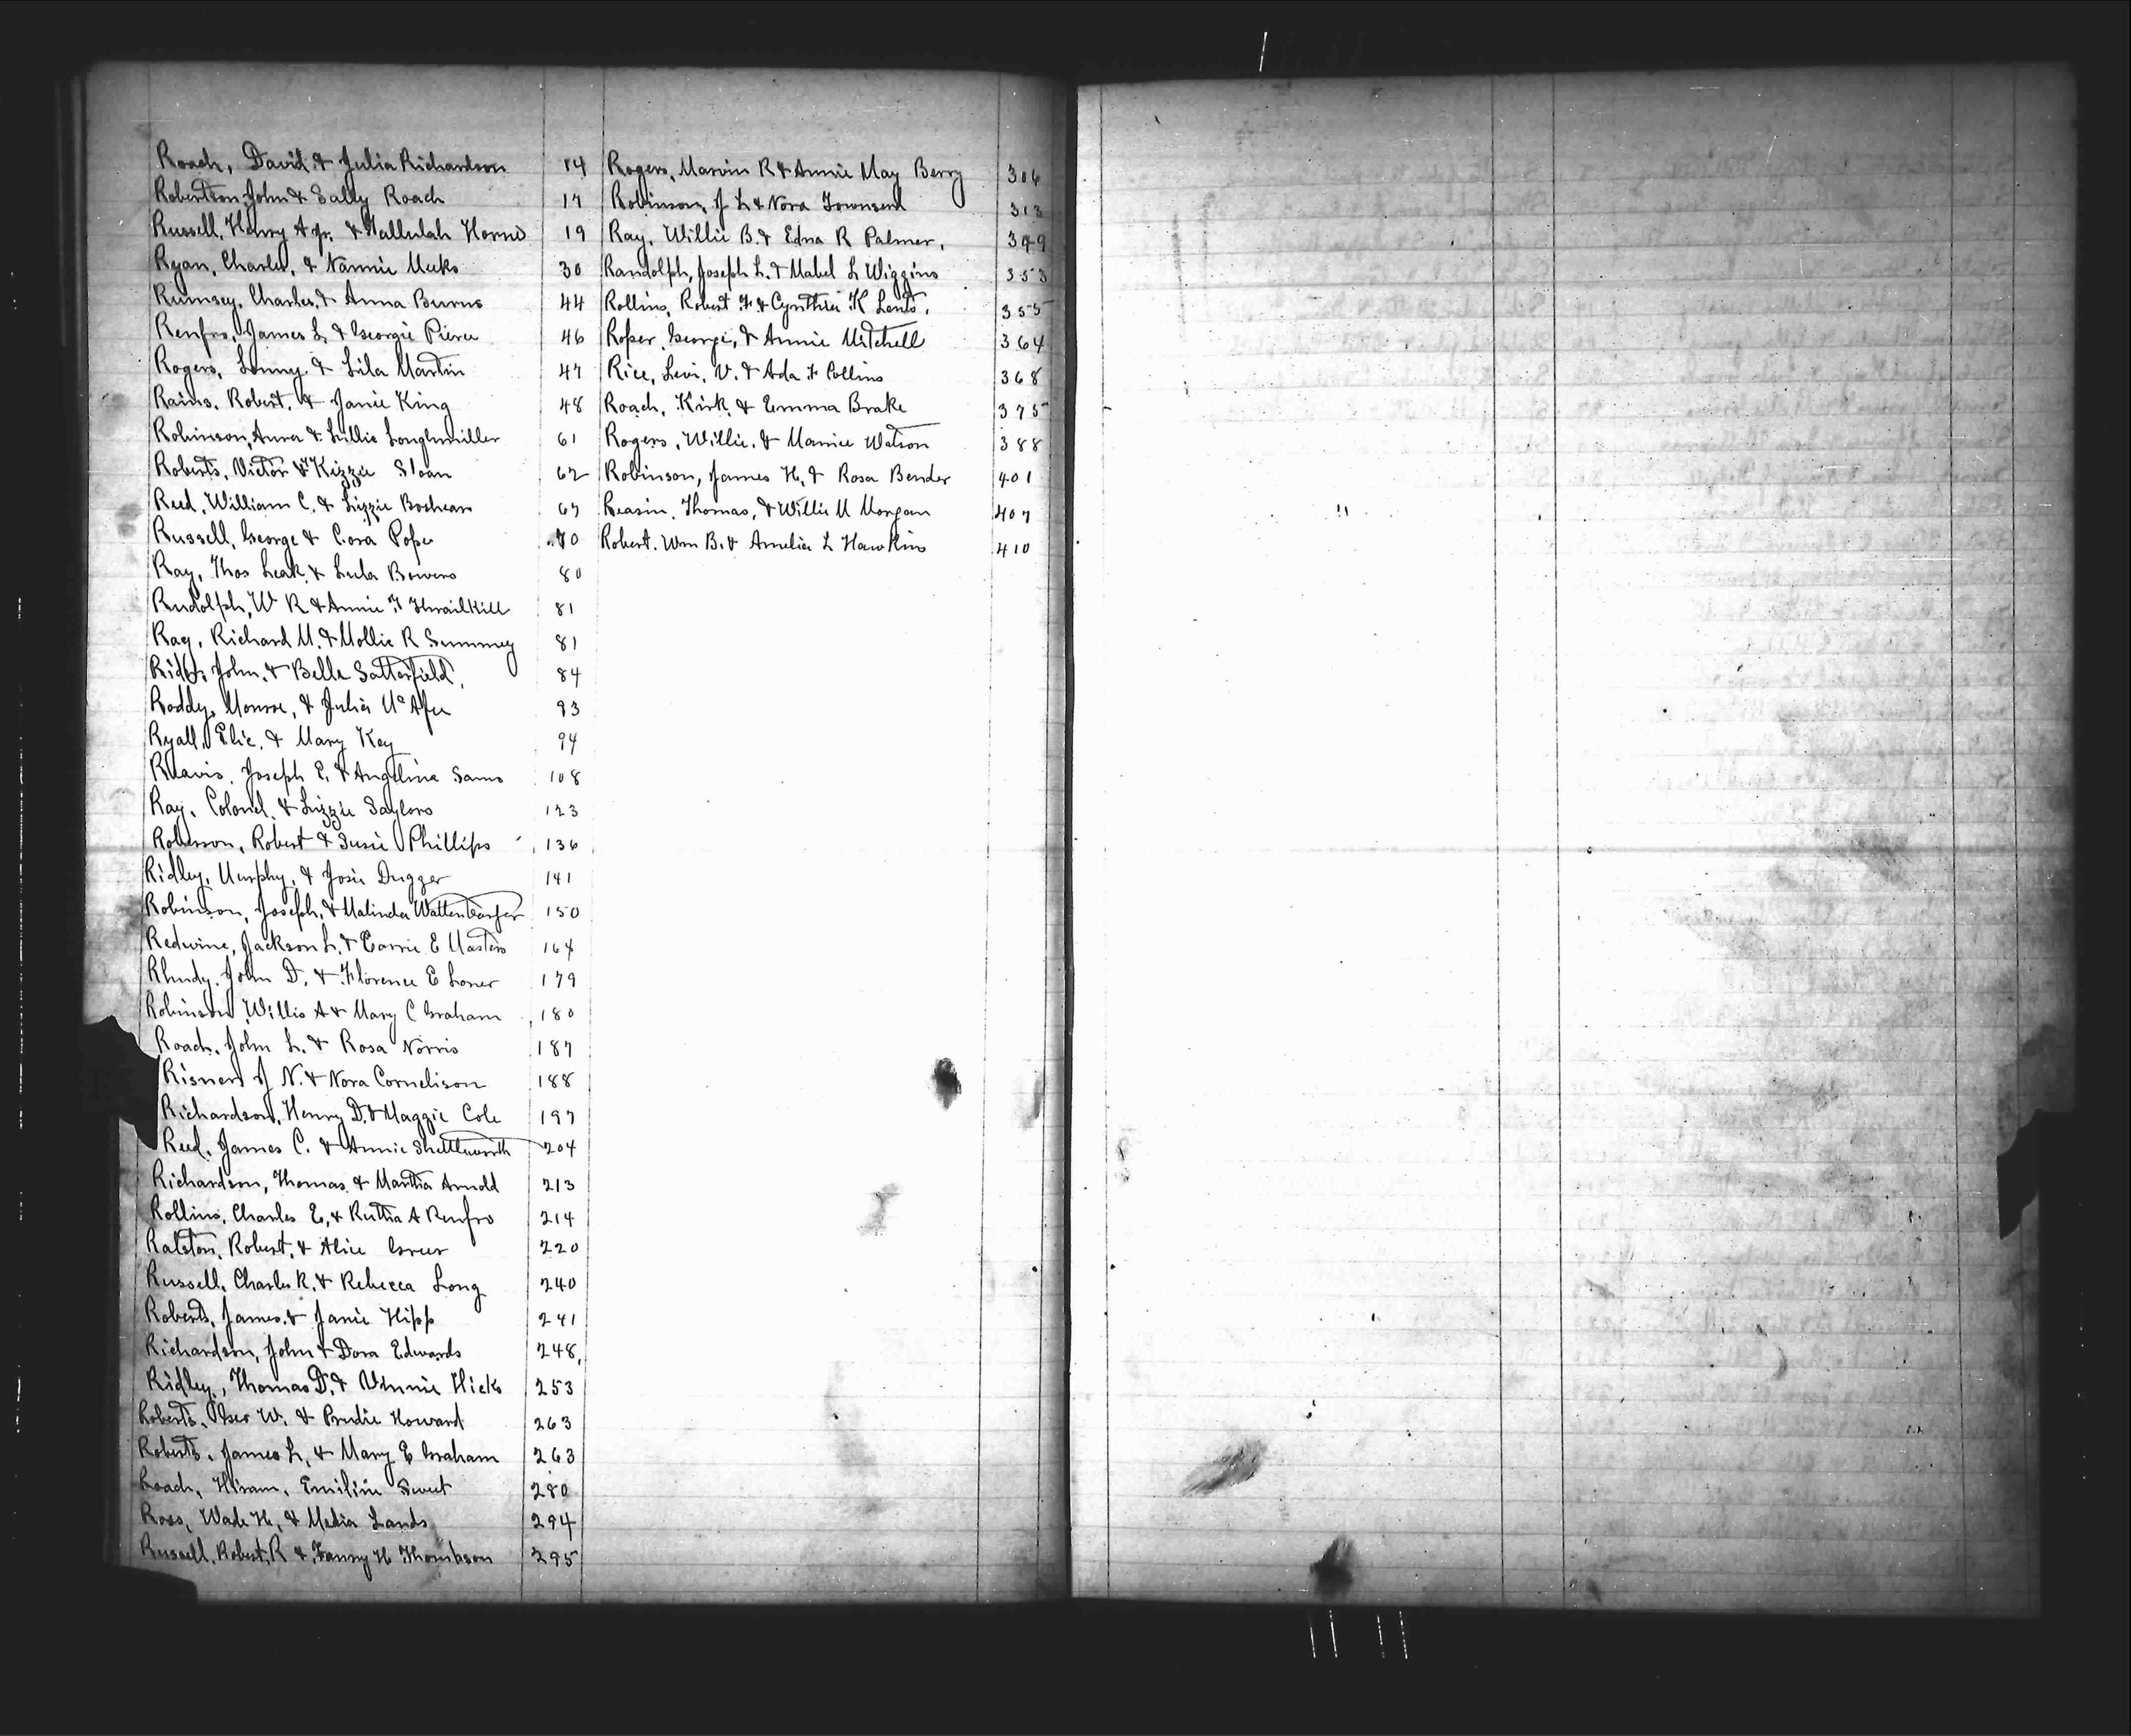 Roach, David. & Julia Richardson 14
Robertson, John & Sally Roach 17
Russell, Henry A Jr. & Tallulah Harris 19
Ryan, Charles, & Nannie Meeks 30
Rumsey, Charles, & Anna Burns 44
Renfro, James L. & Georgie Pierce 46
Rogers, Lonny, & Lila Martin 47
Rains, Robert, & Janie King 48
Robinson, & Lillie Loughmiller 61
Roberts, Victor & Kizzie Sloan 62
Reed, William C. & Lizzie Boshears 67
Russell, George & Cora Pope 70
Ray, Thos Leak, & Lula Bowers 80
Rudolph, W R & Annie F Thrailkill 81
Ray, Richard M. & Mollie R Summey 81
John, & Belle Satterfield, 84
Roddy, Monroe, & Julia McAfee 93
Ryall, Elie, & Mary Key 94
Reavis, Joseph E. & Angelina Sams 108
Ray, Colonel, & Lizzie Saylors 123
Roberson, Robert & Susie Phillips 136
Ridley, Murphy, & Josie Dugger 141
Robinson, Joseph, & Malinda Wattenbarger 150
Redwine, Jackson L. & Carrie E Masters 164
Rhudy, John D. & Florence E Loner 179
Robinson, Willis A & Mary C Graham 180
Roach, John L. & Rosa Norris 187
Risner, J N. & Nora Cornelison 188
Richardson, Henry D. & Maggie Cole 197
Reed, James C. & Annie Shettlesworth 204
Richardson, Thomas, & Martha Arnold 213
Rollins, Charles E, & Rutha A Renfro 214
Ralston, Robert, & Alice Greer 220
Russell, Charles R. & Rebecca Long 240
Roberts, James, & Janie Hipp 241
Richardson, John & Dora Edwards 248,
Ridley, Thomas D. & Vinnie Hicks 253
Roberts, W. & Prudie Howard 263
Roberts, James L, & Mary E Graham 263
Roach, Hiram, Emiline Sweet 280
Ross, Wade H, & Media Lands 294
Russell, Robert, R & Fanny H Thompson 295
Rogers, Marvin R & Annie May Berry 306
Robinson, J L & Nora Townsend 313
Ray, Willie B. & Edna R Palmer, 349
Randolph, Joseph L. & Mabel L Wiggins 353
Rollins, Robert F. & Cynthia K Lents, 355
Roper, George, & Annie Mitchell 364
Rice, Levi, V. & Ada F Collins 368
Roach, Kirk, & Emma Brake 375
Rogers, Willie, & Mamie Watson 388
Robinson, James H, & Rosa Bender 401
Reasin, Thomas, & Willie M Morgan 407
Robert. Wm B. & Amelia L Hawkins 410